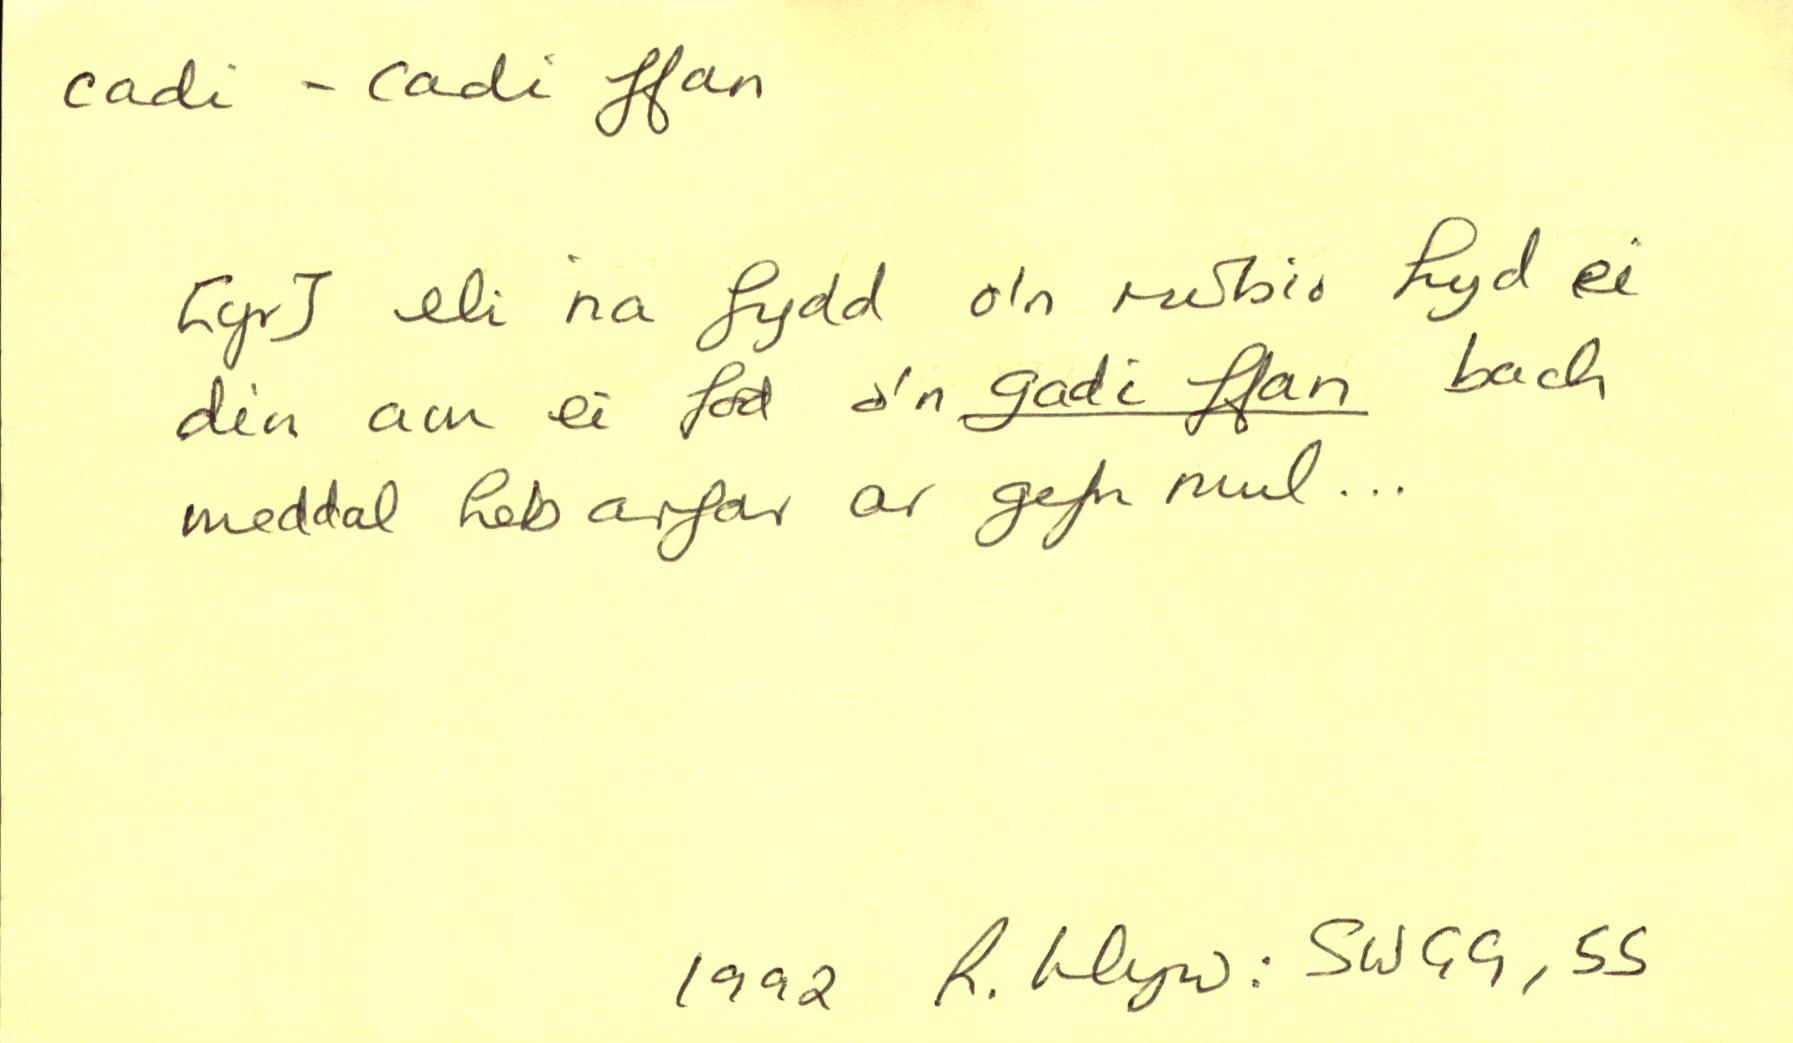 cadi - cadi ffan
[yr] eli 'na fydd o'n rwbio hyd ei
din am ei fod o'n gadi ffan bach
meddal heb arfar ar gefn mul...
1992 R. Wlyw: SWGG, 55